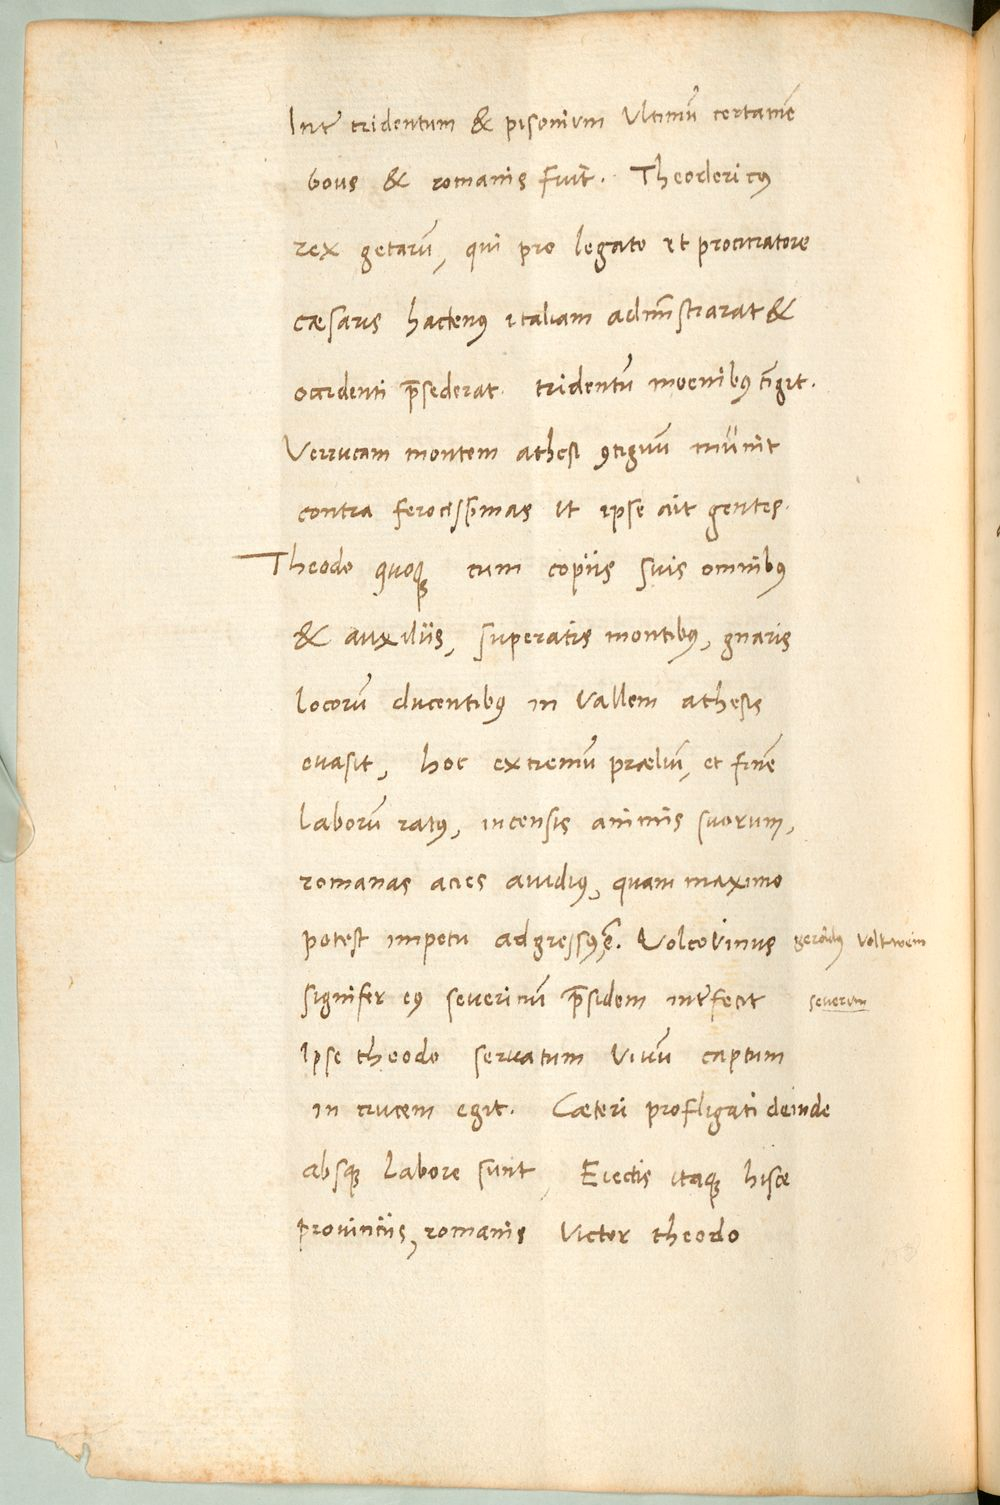 Inter tridentum & pisonium Ultimū certamē
bous & romanis fuit. Theodericꝰ
rex getarū, qui pro legato et procuratore
cæsaris hactenꝰ italiam admīstrarat &
occidenti p̄sederat. tridentū moenibꝰ cīgit.
Verrucam montem athesi ꝯtiguū munit
contra ferocissimas ut ipse ait gentes.
Theodo quoqꝫ cum copiis suis omnibꝰ
& auxiliis, superatis montibꝰ, gnaris
locorū ducentibꝰ in Vallem athesis
evasit, hoc extremū præliū, et finē
laborū ratꝰ, incensis animis suorum,
romanas acies avidiꝰ, quam maximo
potest impetu adgressꝰ ē. Volcovinus geroldꝰ voltwein
signifer eꝰ severinū p̄sidem interfecit severum
Ipse theodo servatum Vivū captum
in crucem egit. Cæteri profligati deinde
absqꝫ labore sunt, Eiectis itaqꝫ hisce
provinciis, romanis Victor theodo